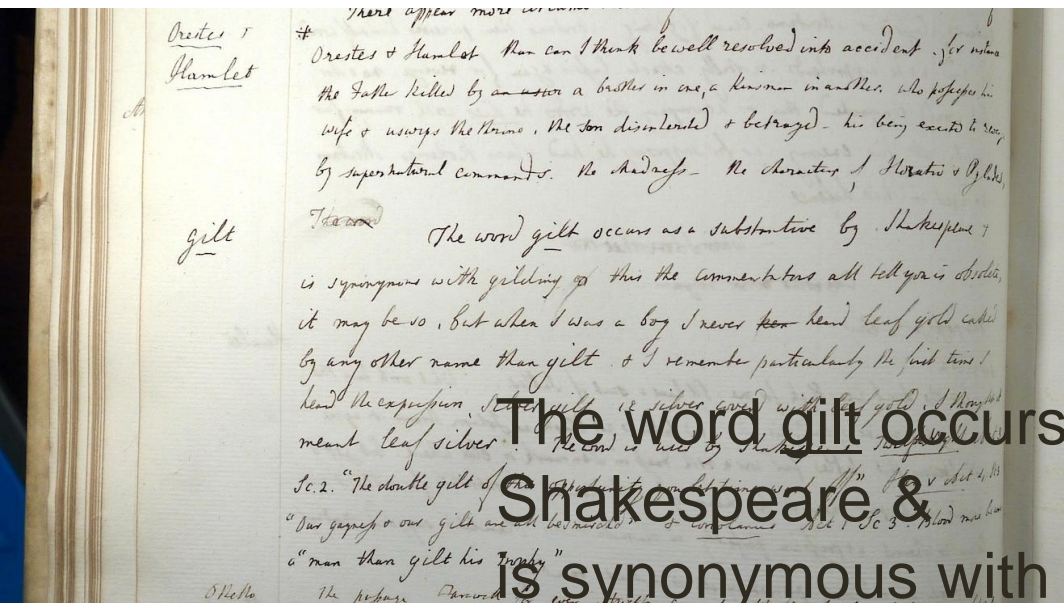 There appear more
Orestes &
Hamlet
Orestes & Hamlet than can I think be well resolved into accident. for instance
the Father killed by an usur a brother in one, a Kinsman in another. who possesses his
wife & usurps the throne, the son disinherited & betrayed - his being excited to revenge
by supernatural commands. the Madness - the characters of Horatio & Pylades,
The word
gilt
The word gilt occurs as a substantive by Shakespeare &
is synonymous with gilding of this the commentators all tell you is obsolete,
it may be so, but when I was a boy I never hear heard leaf gold called
by any other name than gilt. & I remember particularly the first time I
heard the expression, Silver gilt i.e silver coverd with leaf gold, I thought it
meant leaf silver. The word is used by Shakespeare Twelfth Night
Sc. 2. "The double gilt of this opportunity you let time wash off" Hen. V Act 4, Sc
"Our gayness & our gilt are all besmirch'd" & Coriolanus Act 1 Sc 3 "Blood more becomes
"a "man than gilt his trophy"
Othello
The passage
The word gilt occurs
Shakespeare &
is synonymous with